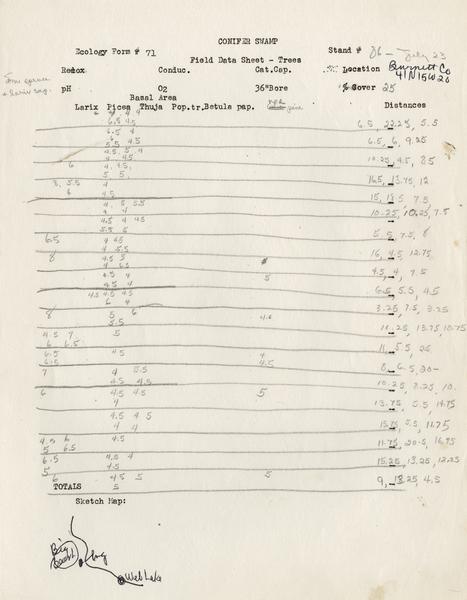 CONIFER SWAMP
Ecology Form # 71 Stand # 06 - July 23
Field Data Sheet - Trees
Redox Conduc. Cat.Cap. Location Burnett Co
41N15W26
pH O2 36"Bore % Cover 25
Basal Area
Larix Picea Thuja Pop.tr. Betula pap. pine Distances
6.5 4.5 6.5, 22.25, 5.5
6.5 4
5.5 4.5 6.5, 6, 9.25
4.5 5 4
6 4 4.5 10.25, 4.5, 8.5
5 5
8, 5.5 4 16.5, 13.75, 12
6 4.5
4 5 5.5 15, 7.5
4 4 10.25, 10.25, 7.5
4.5 4 4.5
5.5 5
6.5 4 6.5 5.5, 7.5, 8
4 5.5
8 4.5 5 16, 4.5, 12.75
4.5 4 5 4.5, 4, 7.5
4.5 4
4.5 4.5 4.5 6.5, 5.5, 4.5
6 4
8 5 6 4.5 3.25, 7.5, 3.25
5.5
4.5 7 5 11.25, 13.75, 10.75
6 6.5
6.5 4.5 4 11, 5.5, 25
6.5 4.5
7 4 5.5 8, 6.5, 20
4.5 4.5
6 4.5 4.5 5 10.25, 8.25, 10
4 13.75, 5.5, 14.75
4.5 4 5
4 4 5.5, 11.75
4.5 6 4.5 11.75, 20.5, 16.75
5 6.5
6.5 4.5 4 15.25, 13.25, 12.25
5 4.5
6 4.5 5 5 9, 18.25, 4.5
TOTALS 5
Sketch Map:
Big
bog
Web Lake